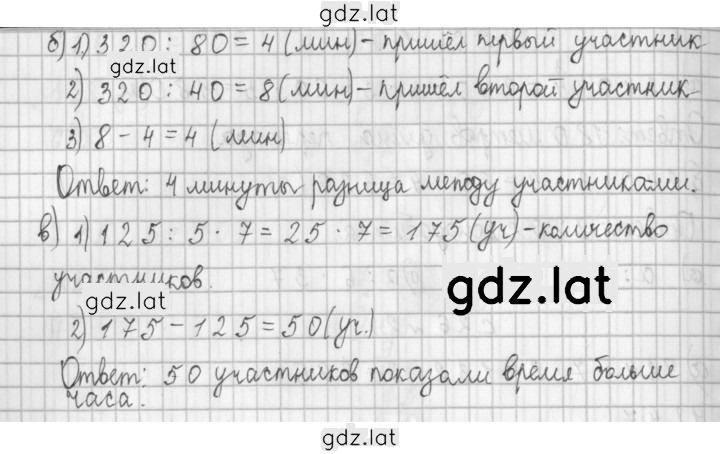 gdz.lat
б) 1) 320 : 80 = 4 (мин) - пришёл первый участник
gdz.lat
2) 320 : 40 = 8 (мин) - пришёл второй участник
3) 8 - 4 = 4 (мин)
Ответ: 4 минуты разница между участниками.
в) 1) 125 : 5 · 7 = 25 · 7 = 175 (уч) - количество
участников.
gdz.lat
gdz.lat
2) 175 - 125 = 50 (уч.)
Ответ: 50 участников показали время больше
часа.
gdz.lat